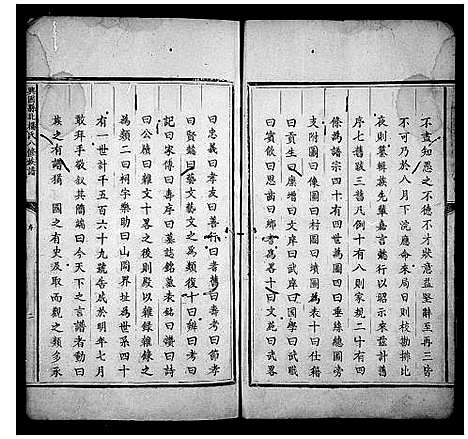 不盡知悉之不德不才狀意益堅辭至再三皆
不可乃於八月下浣應命來局日則校勘排比
夜則纂輯族先輩嘉言懿行以昭示來茲其
序七舊跋三舊凡例十有八則家規二十有四
條為譜宗四十有四世為圖四曰垂絲總圖旁
支附圖曰像圖曰村圖曰墳圖為表十曰仕籍
曰貢生曰廩增曰文庠曰武庠曰國學曰武職
曰賓飲曰恩齒曰鄉耆為畧十曰文苑曰武畧
曰忠義曰孝友曰善行曰耆舊曰壽考曰節孝
曰賢媛曰藝文藝文之為類復十曰辯曰考曰
記曰宋傳曰壽序曰墓誌銘墓表銘曰讚曰詩
曰公牘曰雜文十畧之後則殿以雜錄雜錄之
為類二曰祠宇樂助曰山岡界址為世系四十
有一世計千五百六十九號告成於明年七月
敢拜手敬叙其簡端曰今天下之言譜者動曰
族之有譜猶 國之有史及取而觀之類多承
序
二